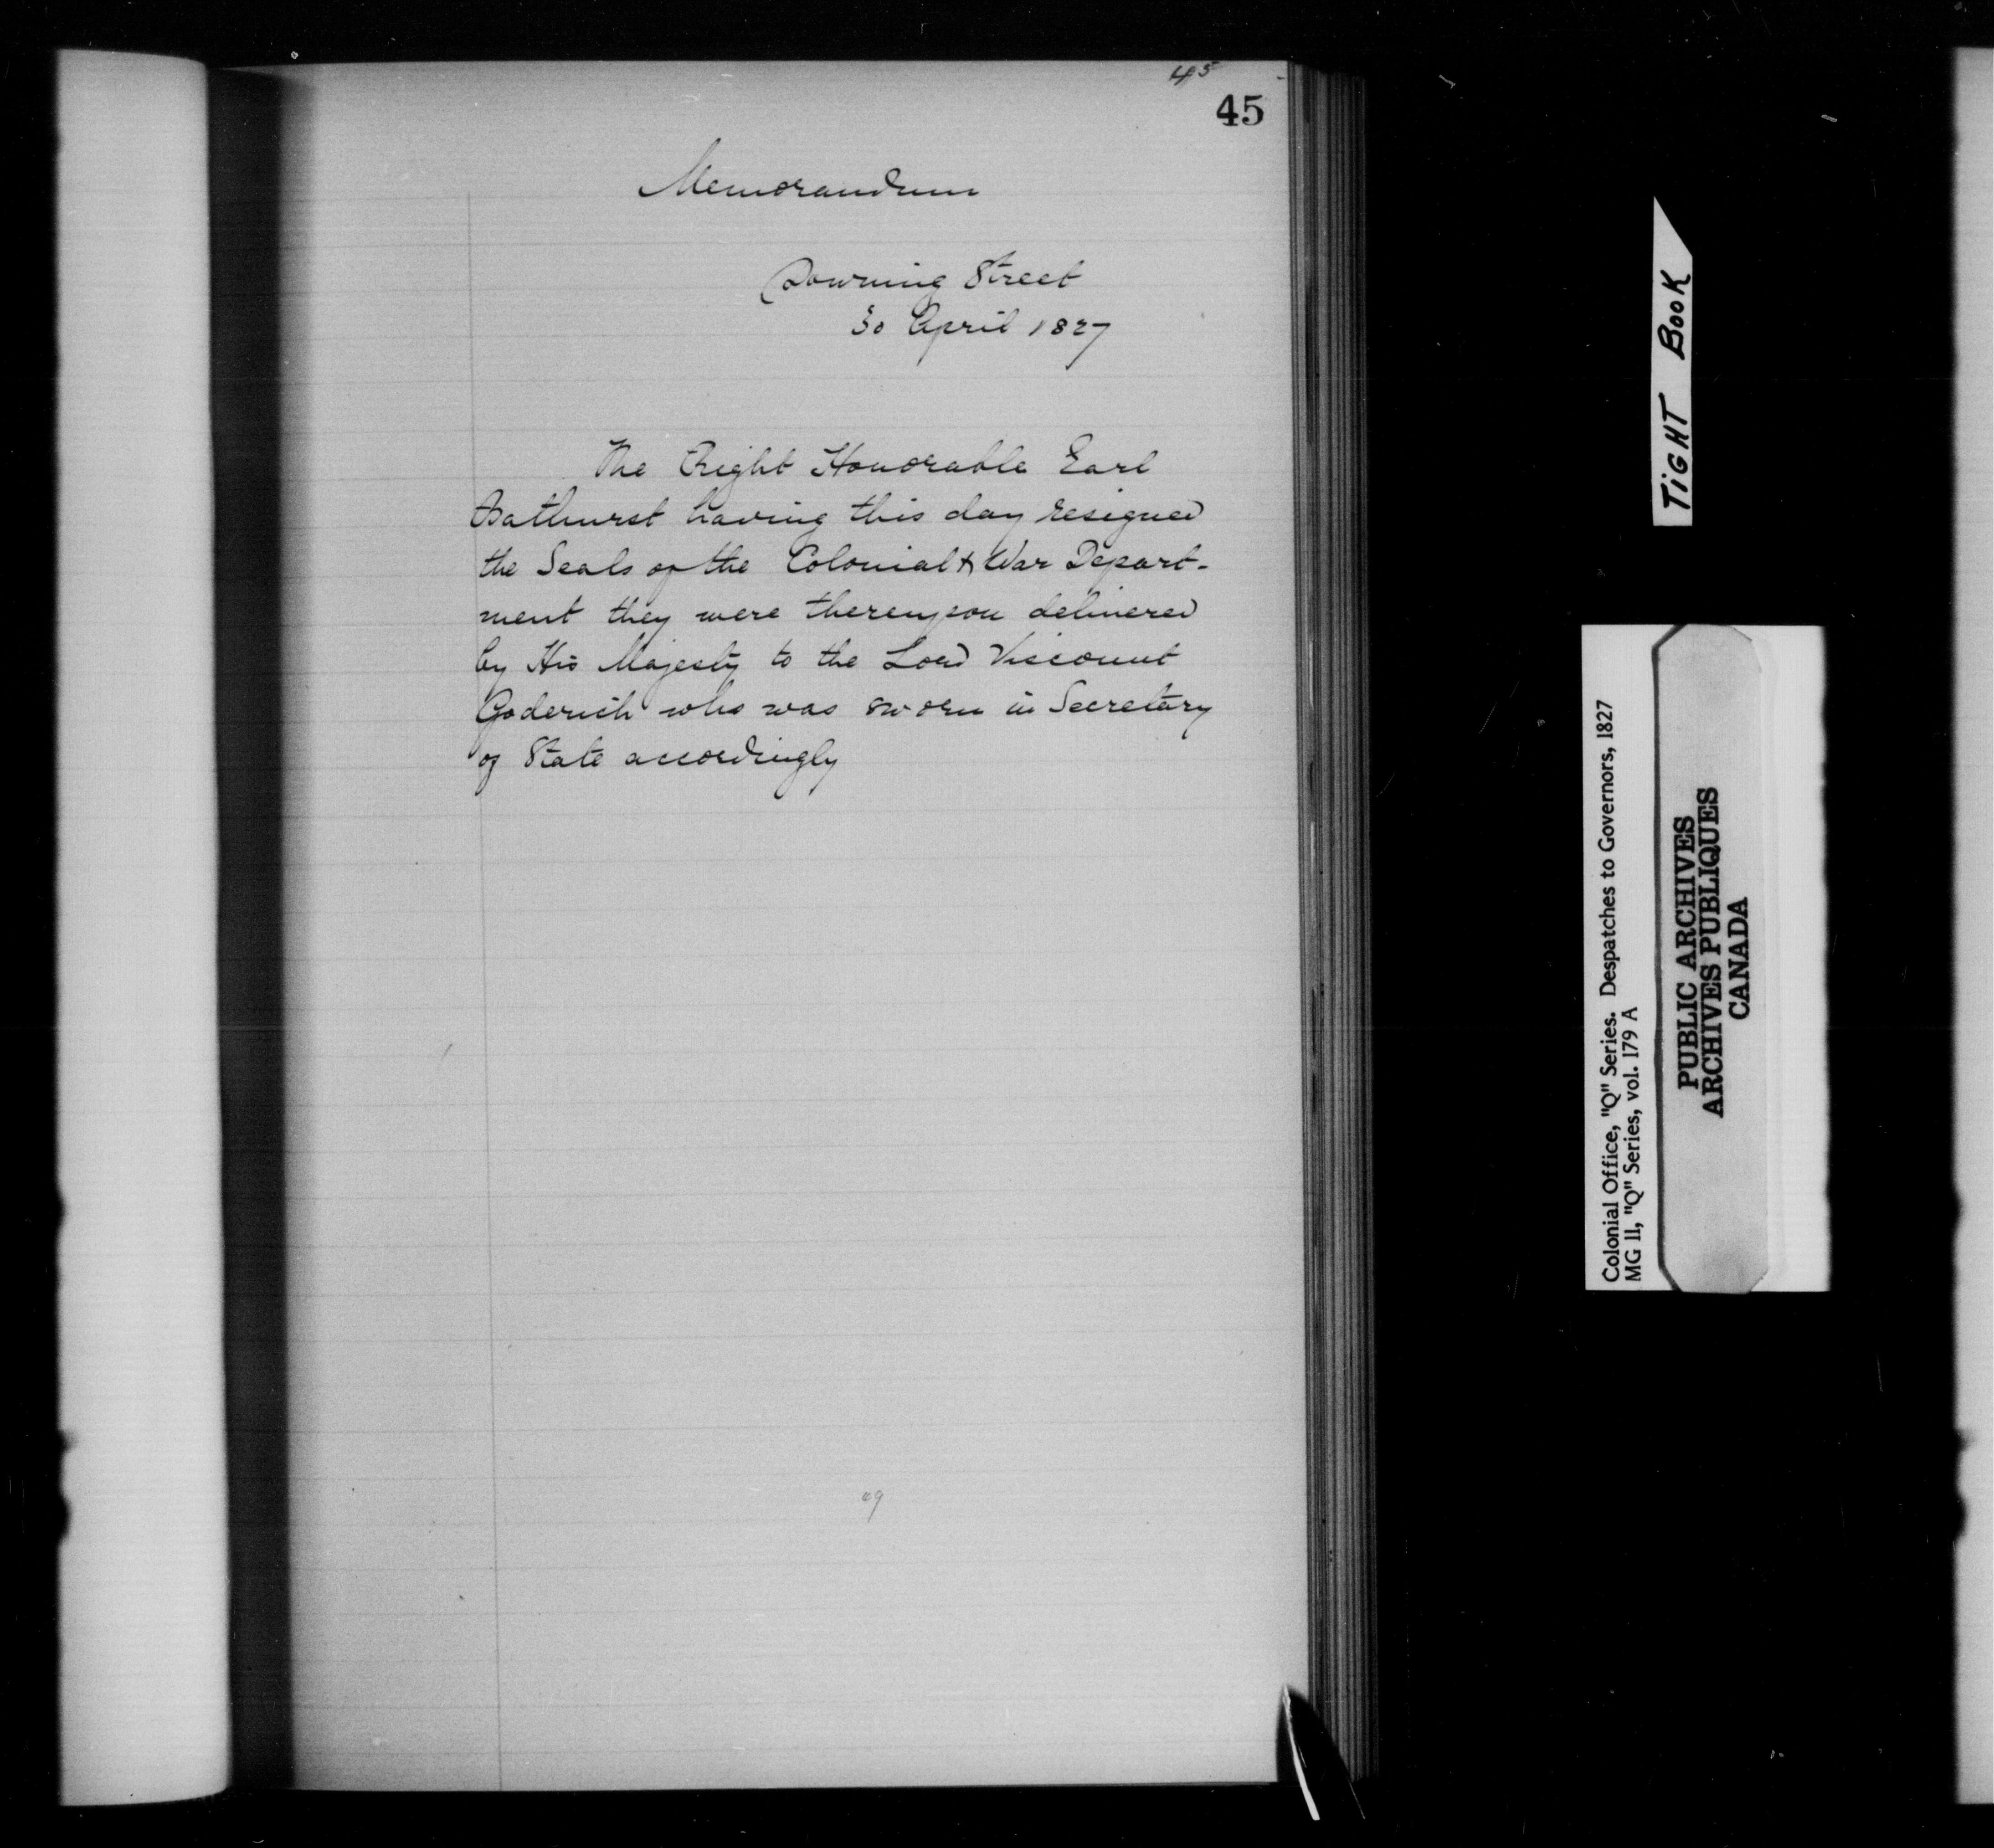 45
45
Memorandum
Downing Street
30 April 1827
The Right Honorable Earl
Bathurst having this day resigned
the Seals of the Colonial & War Depart-
ment they were thereupon delivered
by His Majesty to the Lord Viscount
Goderich who was sworn in Secretary
of State accordingly
TIGHT BOOK
Colonial Office, "Q" Series. Despatches to Governors, 1827
MG 11, "Q" Series, vol. 179 A
PUBLIC ARCHIVES
ARCHIVES PUBLIQUES
CANADA